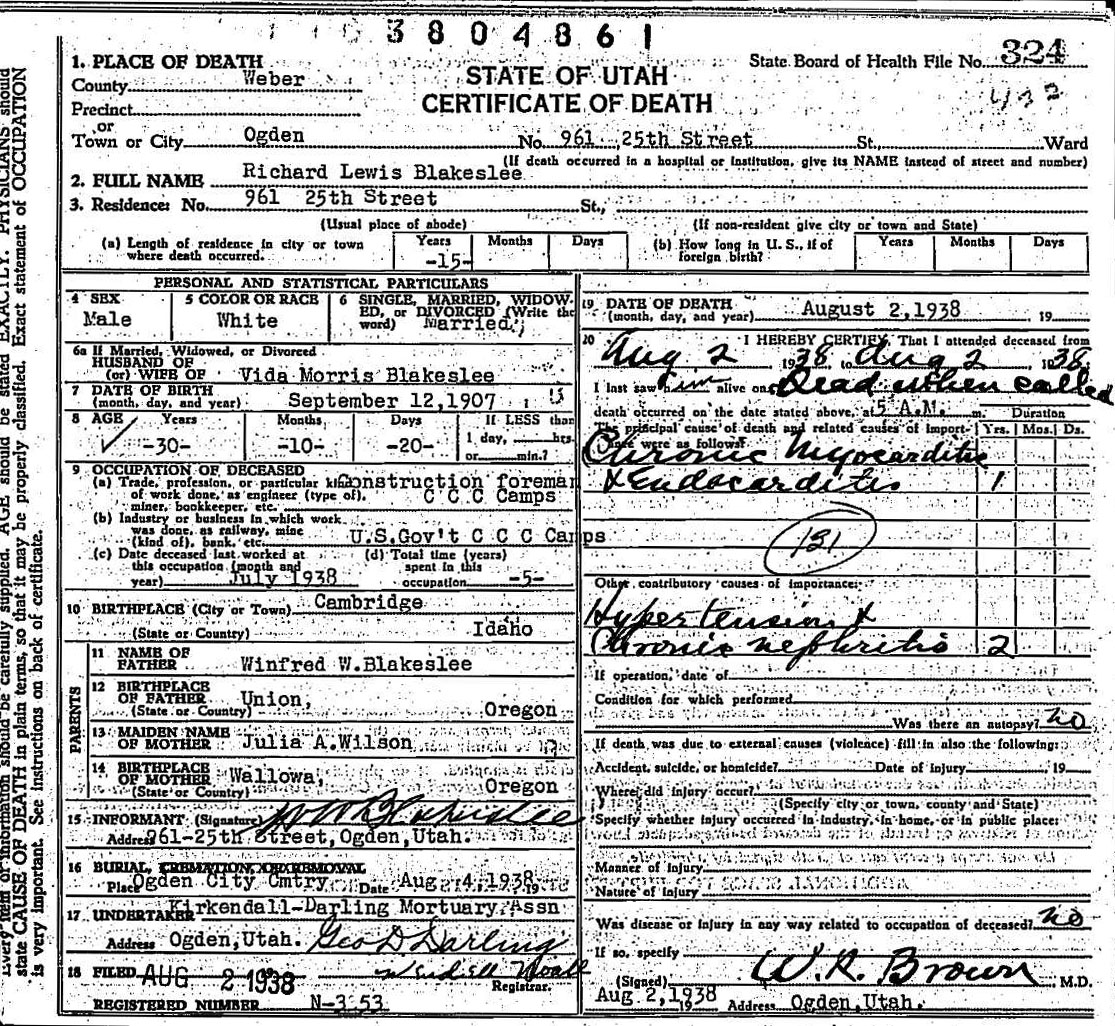 3804861
1. PLACE OF DEATH
State Board of Health File No. 324
County Weber
STATE OF UTAH
432
Precinct
CERTIFICATE OF DEATH
or
Town or City Ogden No. 961 25th Street St. Ward
(If death occurred in a hospital or institution, give its NAME instead of street and number)
2. FULL NAME Richard Lewis Blakeslee
3. Residence: No. 961 25th Street St.,
(Usual place of abode) (If non-resident give city or town and State)
(a) Length of residence in city or town where death occurred. Years -15- Months Days
(b) How long in U. S., if of foreign birth? Years Months Days
PERSONAL AND STATISTICAL PARTICULARS
4 SEX Male
5 COLOR OR RACE White
6 SINGLE, MARRIED, WIDOW-
ED, or DIVORCED (Write the
word) Married,
6a If Married, Widowed, or Divorced
HUSBAND OF
(or) WIFE OF Vida Morris Blakeslee
7 DATE OF BIRTH
(month, day, and year) September 12,1907
8 AGE Years Months Days If LESS than
-30- -10- -20- 1 day, hrs.
or min.?
9 OCCUPATION OF DECEASED
(a) Trade, profession, or particular kind Construction foreman
of work done, as engineer (type of), C C C Camps
miner, bookkeeper, etc.
(b) Industry or business in which work
was done, as railway, mine
(kind of), bank, etc. U.S.Gov't C C C Camps
(c) Date deceased last worked at
this occupation (month and
year) July 1938
(d) Total time (years)
spent in this
occupation -5-
10 BIRTHPLACE (City or Town) Cambridge
(State or Country) Idaho
PARENTS
11 NAME OF
FATHER Winfred W.Blakeslee
12 BIRTHPLACE
OF FATHER Union,
(State or Country) Oregon
13 MAIDEN NAME
OF MOTHER Julia A.Wilson
14 BIRTHPLACE
OF MOTHER Wallowa,
(State or Country) Oregon
15 INFORMANT (Signature) W W Blakeslee
Address 961-25th Street,Ogden,Utah.
16 BURIAL, CREMATION, OR REMOVAL
Place Ogden City Cmtry. Date Aug. 4,1938 19
17 UNDERTAKER Kirkendall-Darling Mortuary Assn
Address Ogden,Utah. Geo D Darling
18 FILED AUG 2 1938 Wendell Noall
Registrar.
REGISTERED NUMBER N-353
19 DATE OF DEATH
(month, day, and year) August 2,1938 , 19
20 I HEREBY CERTIFY, That I attended deceased from
Aug 2 1938 to Aug 2 1938
I last saw him alive on Dead when called
death occurred on the date stated above, at 5 A.M. m. Duration
The principal cause of death and related causes of import- Yrs. Mos. Ds.
ance were as follows:
Chronic Myocarditis
& Endocarditis 1
131
Other contributory causes of importance:
Hypertension &
Chronic nephritis 2
If operation, date of
Condition for which performed
Was there an autopsy? no
If death was due to external causes (violence) fill in also the following:
Accident, suicide, or homicide? Date of injury , 19
Where did injury occur?
(Specify city or town, county and State)
Specify whether injury occurred in industry, in home, or in public place:
Manner of injury
Nature of injury
Was disease or injury in any way related to occupation of deceased? no
If so, specify
(Signed) W. R. Brown M.D.
Aug 2,1938 19 Address Ogden,Utah.
state CAUSE OF DEATH in plain terms, so that it may be properly classified. Exact statement of OCCUPATION
is very important. See instructions on back of certificate.